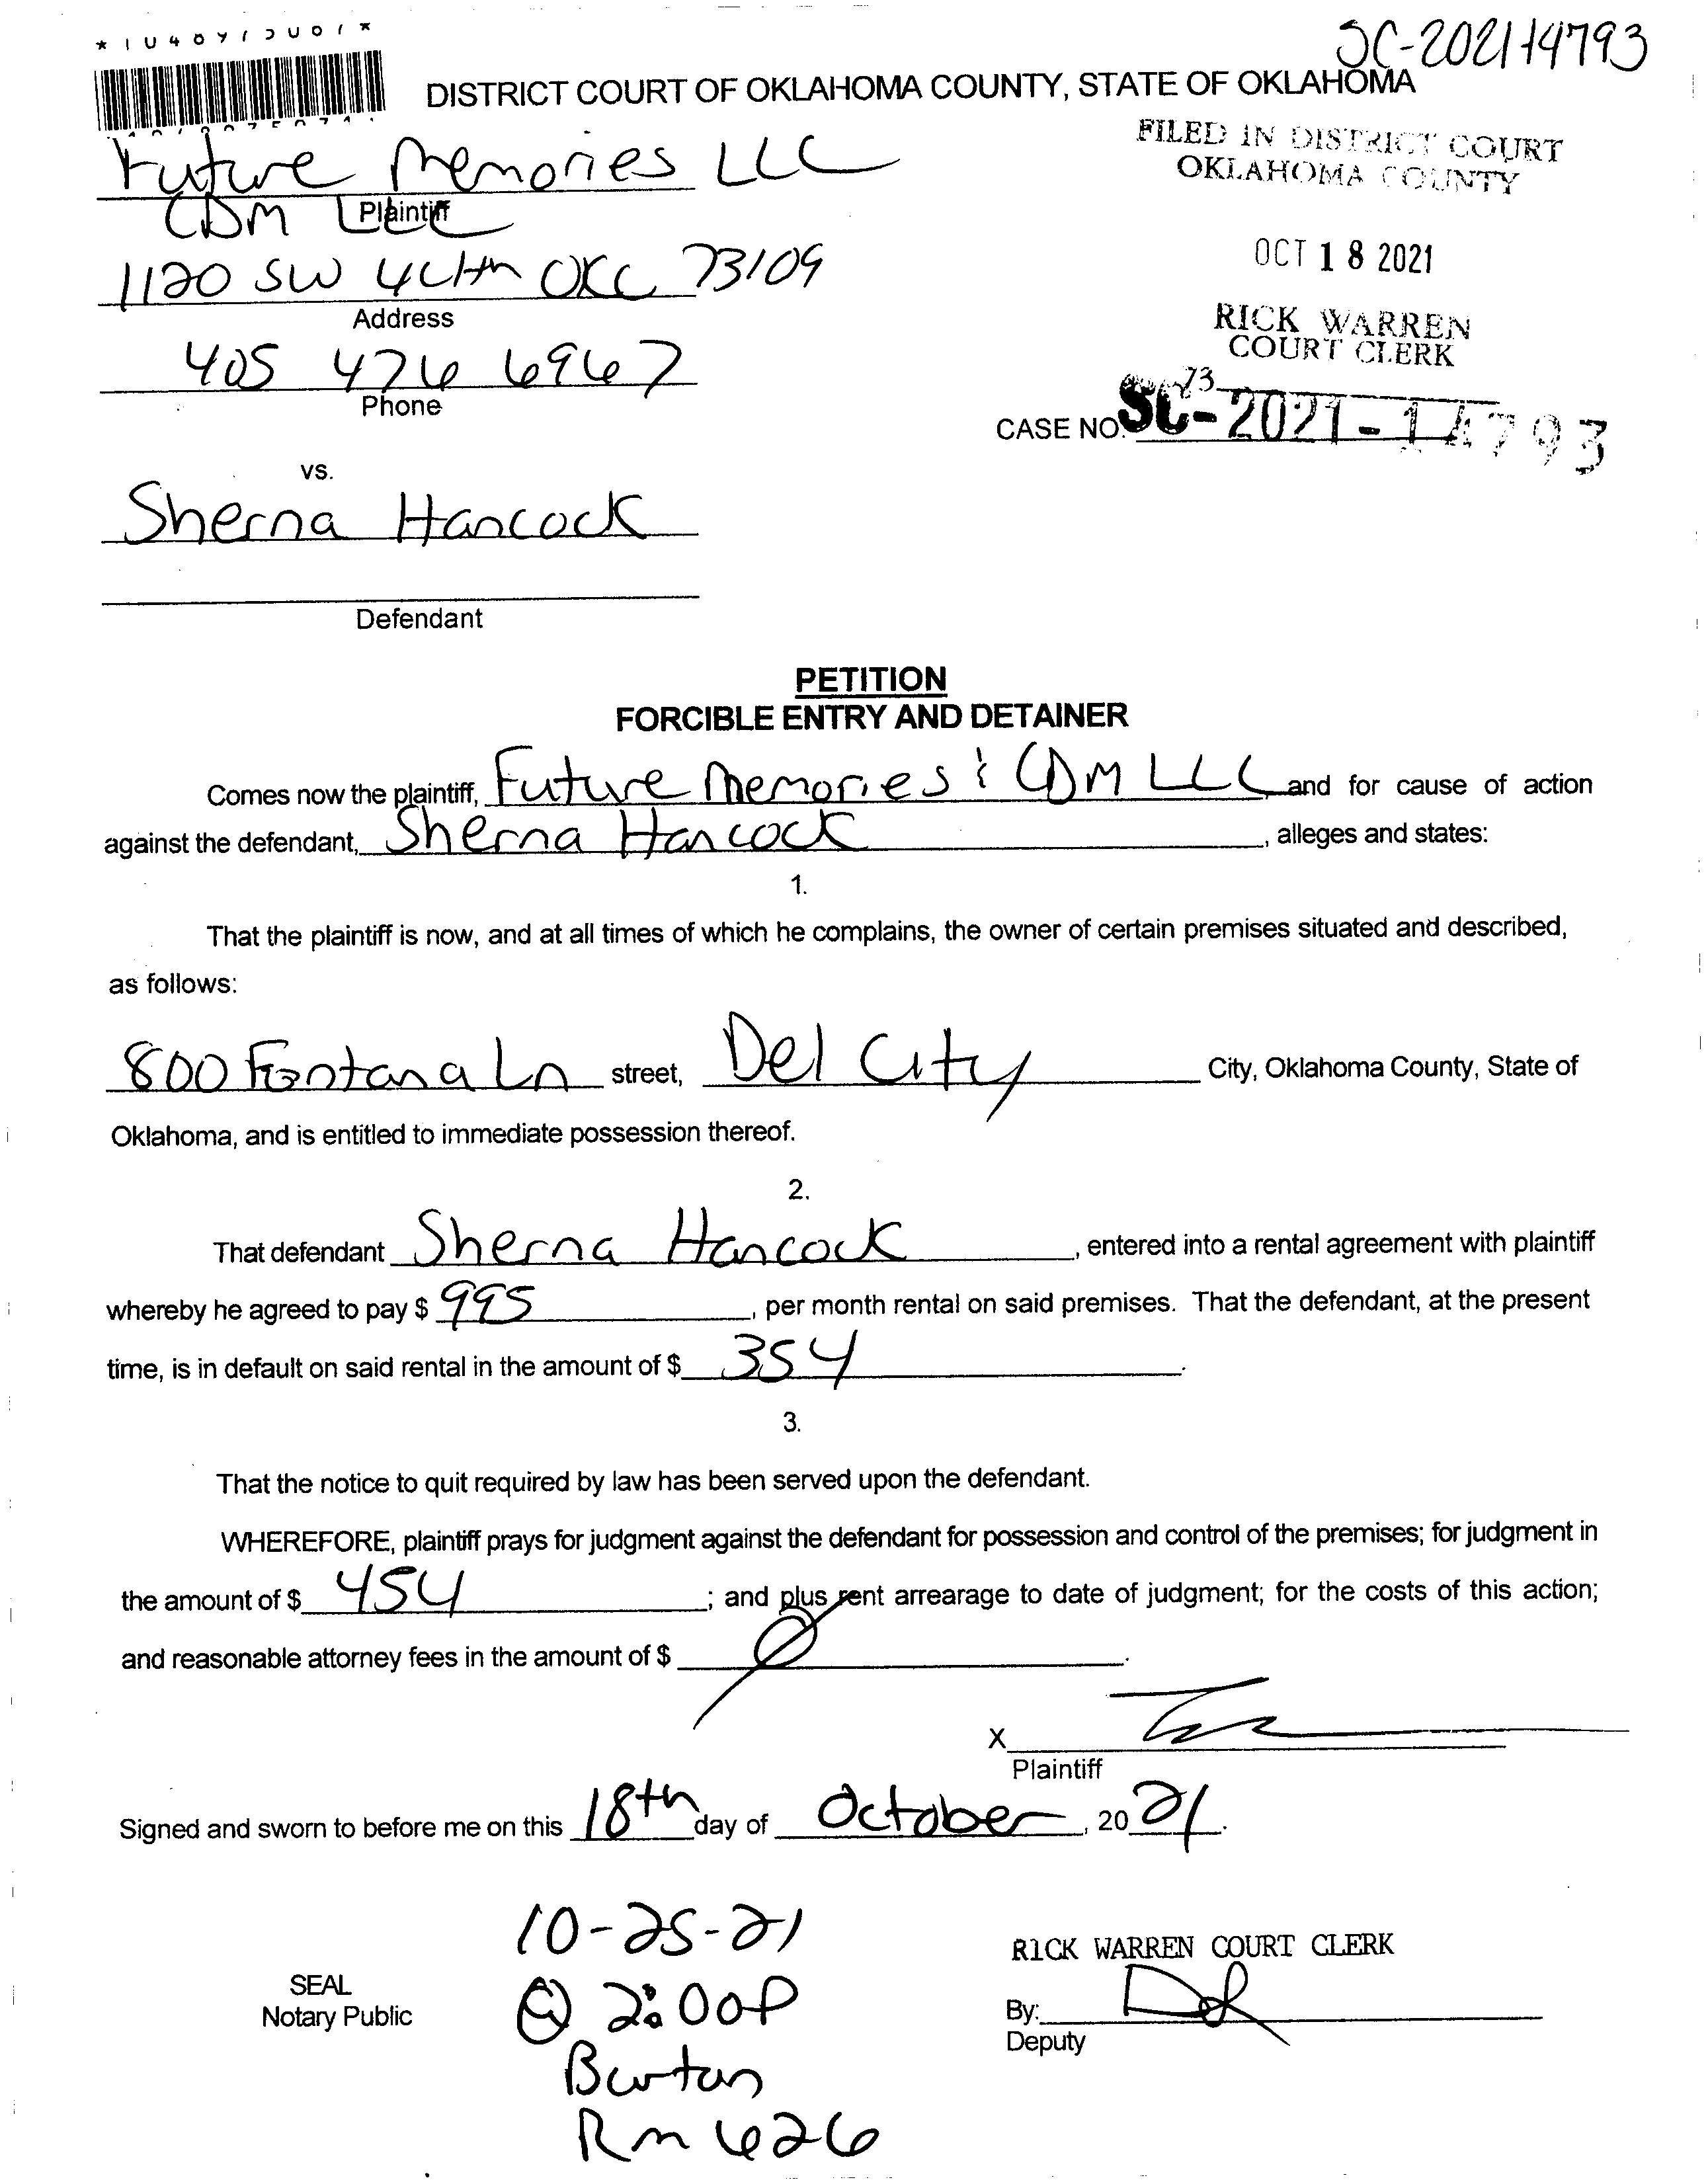 SC-2021-14793
DISTRICT COURT OF OKLAHOMA COUNTY, STATE OF OKLAHOMA
FILED IN DISTRICT COURT
OKLAHOMA COUNTY
Future Memories LLC
Plaintiff
CDM LLC
OCT 18 2021
1120 SW 44th OKC 73109
Address
RICK WARREN
COURT CLERK
405 476 6967
Phone
73
CASE NO. SC-2021-14793
vs.
Sherna Hancock
Defendant
PETITION
FORCIBLE ENTRY AND DETAINER
Comes now the plaintiff, Future Memories & CDM LLC and for cause of action
against the defendant, Sherna Hancock, alleges and states:
1.
That the plaintiff is now, and at all times of which he complains, the owner of certain premises situated and described,
as follows:
800 Fontana Ln street, Del City City, Oklahoma County, State of
Oklahoma, and is entitled to immediate possession thereof.
2.
That defendant Sherna Hancock, entered into a rental agreement with plaintiff
whereby he agreed to pay $ 995, per month rental on said premises. That the defendant, at the present
time, is in default on said rental in the amount of $ 354.
3.
That the notice to quit required by law has been served upon the defendant.
WHEREFORE, plaintiff prays for judgment against the defendant for possession and control of the premises; for judgment in
the amount of $ 454; and plus rent arrearage to date of judgment; for the costs of this action;
and reasonable attorney fees in the amount of $ Ø.
X
Plaintiff
Signed and sworn to before me on this 18th day of October, 2021.
10-25-21
@ 2:00P
Burton
Rm 626
SEAL
Notary Public
RICK WARREN COURT CLERK
By:
Deputy